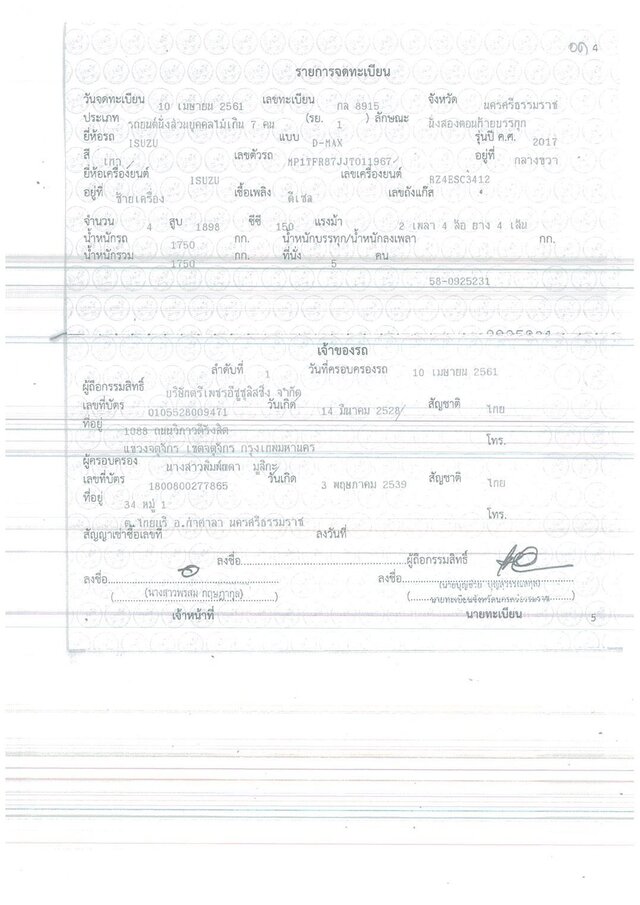 4
รายการจดทะเบียน
วันจดทะเบียน 10 เมษายน 2561 เลขทะเบียน กล 8915 จังหวัด นครศรีธรรมราช
ประเภท รถยนต์นั่งส่วนบุคคลไม่เกิน 7 คน (รย. 1 ) ลักษณะ นั่งสองตอนท้ายบรรทุก
ยี่ห้อรถ ISUZU แบบ D-MAX รุ่นปี ค.ศ. 2017
สี เทา เลขตัวรถ MP1TFR87JJT011967 อยู่ที่ กลางขวา
ยี่ห้อเครื่องยนต์ ISUZU เลขเครื่องยนต์ RZ4ESC3412
อยู่ที่ ซ้ายเครื่อง เชื้อเพลิง ดีเซล เลขถังแก๊ส
จำนวน 4 สูบ 1898 ซีซี 150 แรงม้า 2 เพลา 4 ล้อ ยาง 4 เส้น
น้ำหนักรถ 1750 กก. น้ำหนักบรรทุก/น้ำหนักลงเพลา กก.
น้ำหนักรวม 1750 กก. ที่นั่ง 5 คน
58-0925231
เจ้าของรถ
ลำดับที่ 1 วันที่ครอบครองรถ 10 เมษายน 2561
ผู้ถือกรรมสิทธิ์ บริษัทตรีเพชรอีซูซุลิสซิ่ง จำกัด
เลขที่บัตร 0105528009471 วันเกิด 14 มีนาคม 2528 สัญชาติ ไทย
ที่อยู่ 1088 ถนนวิภาวดีรังสิต
แขวงจตุจักร เขตจตุจักร กรุงเทพมหานคร โทร.
ผู้ครอบครอง นางสาวพิมพ์ลดา มูลิกะ
เลขที่บัตร 1800800277865 วันเกิด 3 พฤษภาคม 2539 สัญชาติ ไทย
ที่อยู่ 34 หมู่ 1 โทร.
ต.ไทยบุรี อ.ท่าศาลา นครศรีธรรมราช
สัญญาเช่าซื้อเลขที่ ลงวันที่
ลงชื่อ ผู้ถือกรรมสิทธิ์
ลงชื่อ ลงชื่อ
(นางสาวพรสม กฤษฎากุล)
นายทะเบียนจังหวัดนครศรีธรรมราช
เจ้าหน้าที่ นายทะเบียน 5